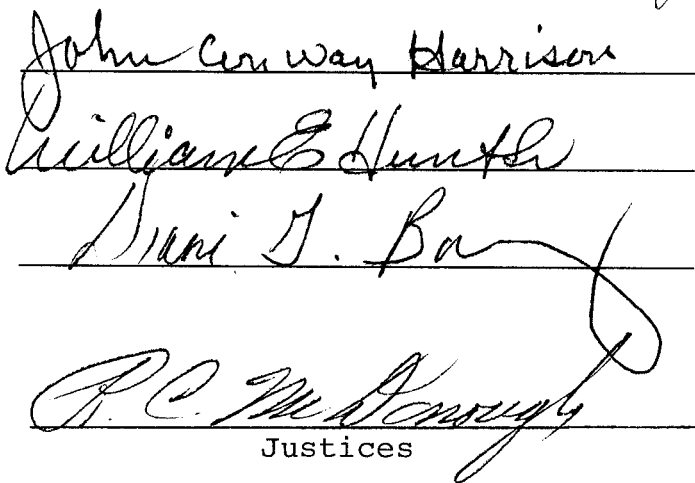 John Conway Harrison
William E Hunter
Diane G. Barz
R. C. McDonough
Justices